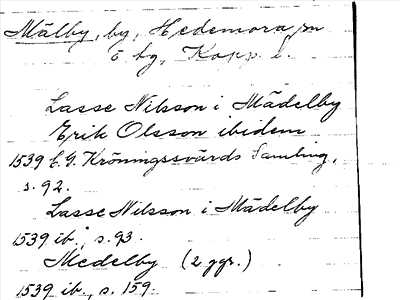 Mälby, by, Hedemora sn
Ö bg, Kopp. l.
Lasse Nilsson i Mädelby
Erik Olsson ibidem
1539 C.G. Kröningssvärds Samling,
s. 92.
Lasse Nilsson i Mädelby
1539 ib., s. 93.
Medelby (2 ggr.)
1539 ib., s. 159.